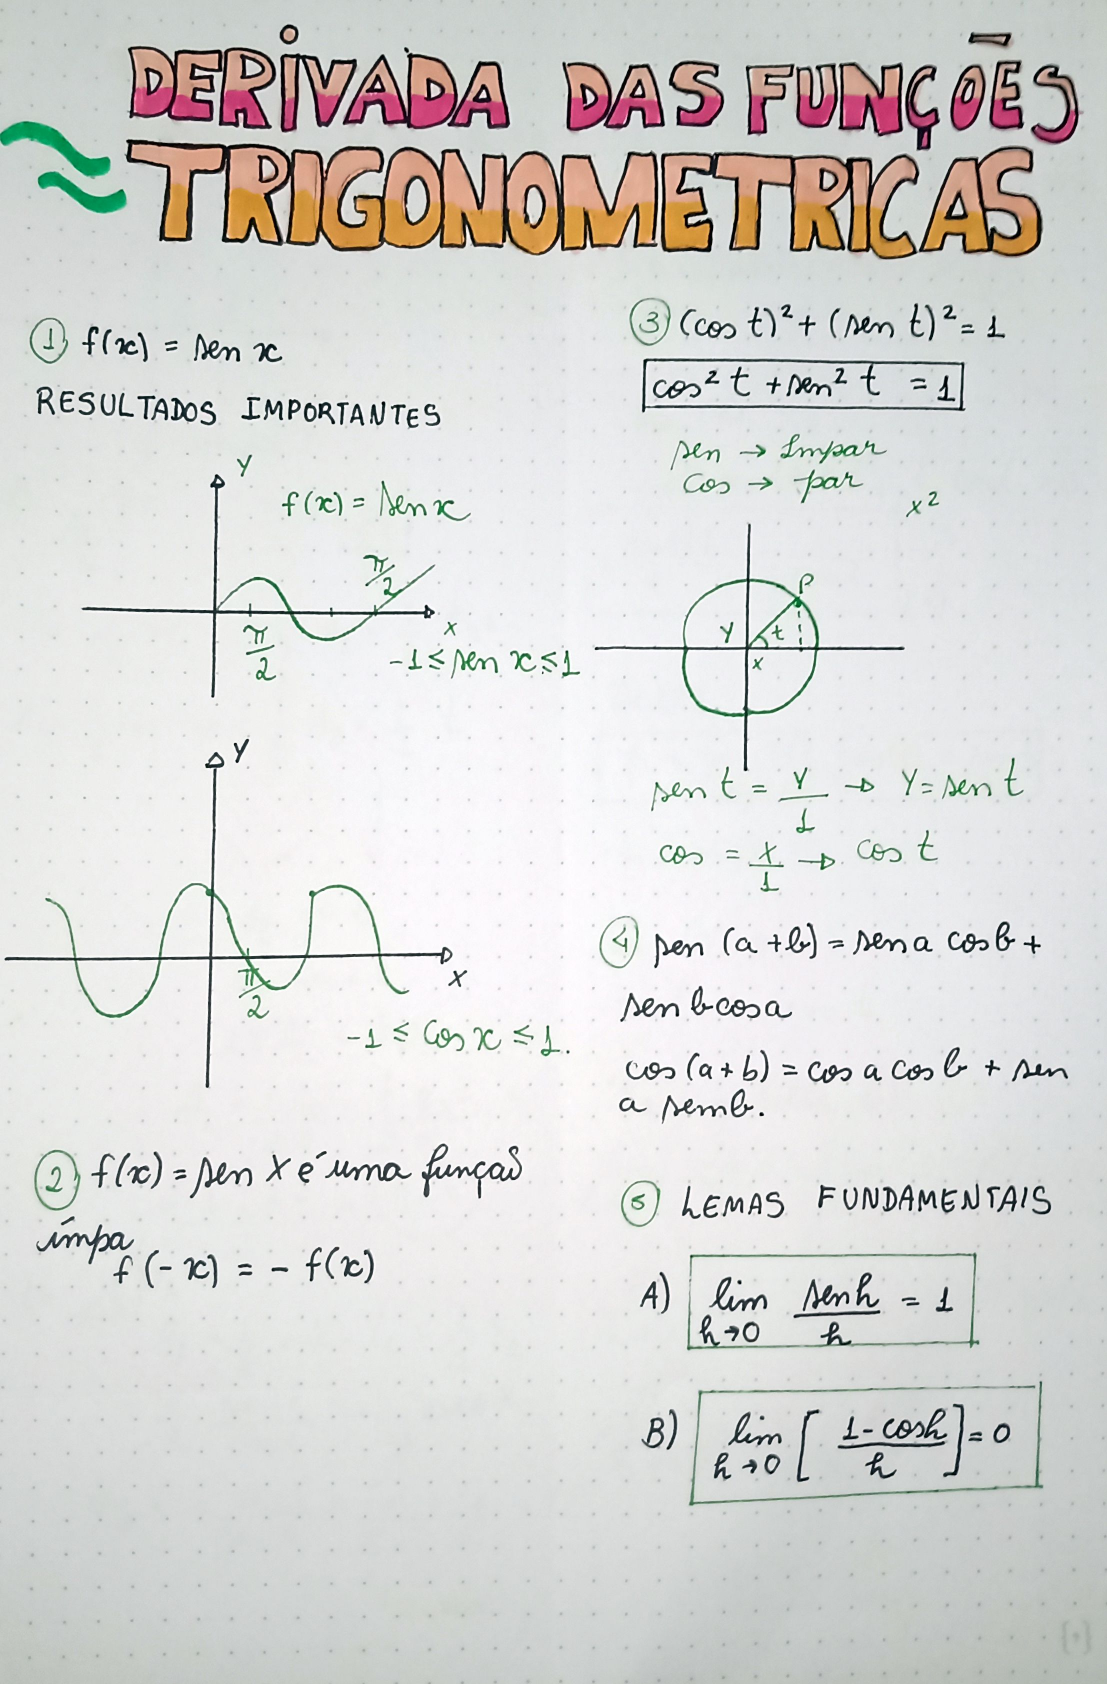 DERIVADA DAS FUNÇÕES
TRIGONOMETRICAS
1 f(x) = sen x
RESULTADOS IMPORTANTES
Y
f(x) = sen x
π/2
x
π/2
-1 ≤ sen x ≤ 1
Y
π/2
x
-1 ≤ cos x ≤ 1.
2 f(x) = sen x é uma função
ímpa
f(-x) = - f(x)
3 (cos t)² + (sen t)² = 1
cos² t + sen² t = 1
sen → Impar
cos → par
x²
P
Y t
x
sen t = Y/1 → Y = sen t
cos = x/1 → cos t
4 sen (a+b) = sen a cos b +
sen b cos a
cos (a+b) = cos a cos b + sen
a semb.
5 LEMAS FUNDAMENTAIS
A) lim h→0 senh/h = 1
B) lim h→0 [ 1-cosh/h ] = 0